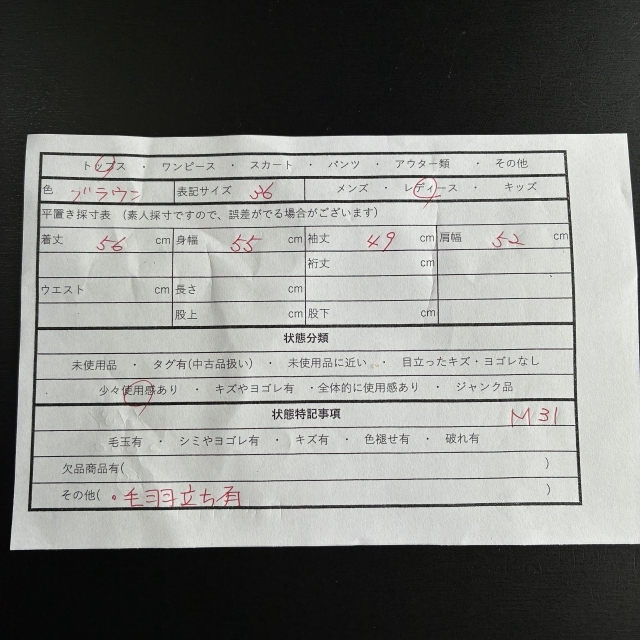 トップス ・ ワンピース ・ スカート ・ パンツ ・ アウター類 ・ その他
色 ブラウン 表記サイズ 36 メンズ ・ レディース ・ キッズ
平置き採寸表 （素人採寸ですので、誤差がでる場合がございます）
着丈 56 cm 身幅 55 cm 袖丈 49 cm 肩幅 52 cm
裄丈 cm
ウエスト cm 長さ cm
股上 cm 股下 cm
状態分類
未使用品 ・ タグ有(中古品扱い) ・ 未使用品に近い ・ 目立ったキズ・ヨゴレなし
少々使用感あり ・ キズやヨゴレ有 ・全体的に使用感あり ・ ジャンク品
状態特記事項 M31
毛玉有 ・ シミやヨゴレ有 ・ キズ有 ・ 色褪せ有 ・ 破れ有
欠品商品有( )
その他( ・毛羽立ち有 )